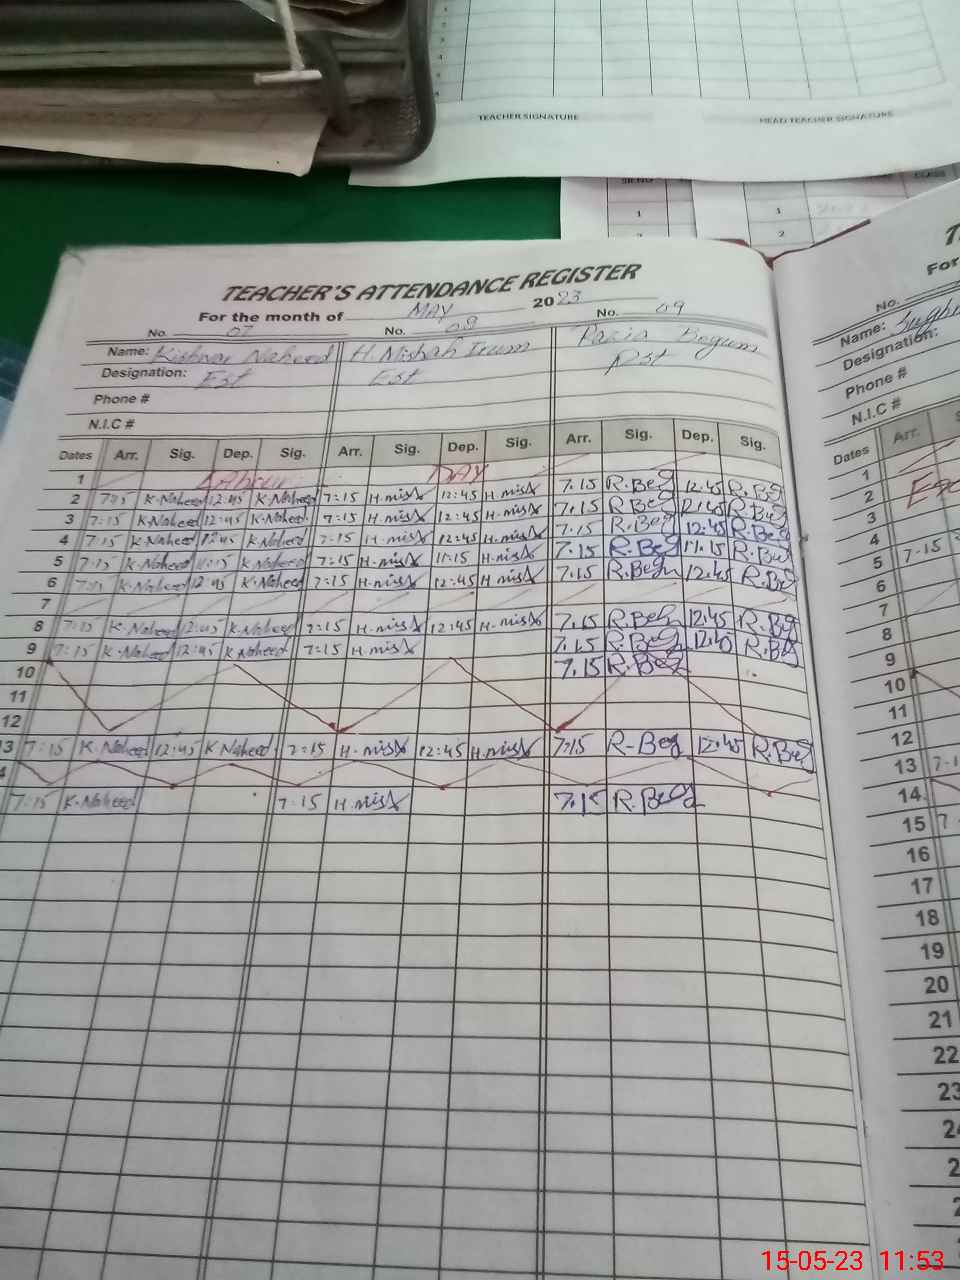 TEACHER SIGNATURE
HEAD TEACHER SIGNATURE
SR.NO
CLASS
1
1
2
2
TEACHER'S ATTENDANCE REGISTER
For the month of MAY 2023
No. 07 No. 08 No. 09
Name: Kishwar Naheed H. Misbah Irum Razia Begum
Designation: Est Est
Phone #
N.I.C #
Dates Arr. Sig. Dep. Sig. Arr. Sig. Dep. Sig. Arr. Sig. Dep. Sig.
1 Labour DAY
2 7:15 K.Naheed 12:45 K.Naheed 7:15 H.misb 12:45 H.misb 7.15 R.Beg 12.45 R.Beg
3 7:15 K.Naheed 12:45 K.Naheed 7:15 H.misb 12:45 H.misb 7.15 R.Beg 12.45 R.Beg
4 7:15 K.Naheed 12:45 K.Naheed 7:15 H.misb 12:45 H.misb 7.15 R.Beg 12.45 R.Beg
5 7:15 K.Naheed 11:15 K.Naheed 7:15 H.misb 11:15 H.misb 7.15 R.Beg 11.15 R.Beg
6 7:15 K.Naheed 12:45 K.Naheed 7:15 H.misb 12:45 H.misb 7.15 R.Begu 12.45 R.Beg
7
8 7:15 K.Naheed 12:45 K.Naheed 7:15 H.misb 12:45 H.misb 7.15 R.Beg 12.45 R.Beg
9 7:15 K.Naheed 12:45 K.Naheed 7:15 H.misb 7.15 R.Beg 12.45 R.Beg
10 7.15 R.Beg
11
12
13 7:15 K.Naheed 12:45 K.Naheed 7:15 H.misb 12:45 H.misb 7:15 R-Beg 12.45 R.Beg
4
7:15 K.Naheed 7:15 H.misb 7.15 R.Beg
For
No.
Name:
Designation:
Phone #
N.I.C #
Dates Arr.
1
2
3
4
5 7:15
6
7
8
9
10
11
12
13
14
15
16
17
18
19
20
21
22
23
15-05-23 11:53